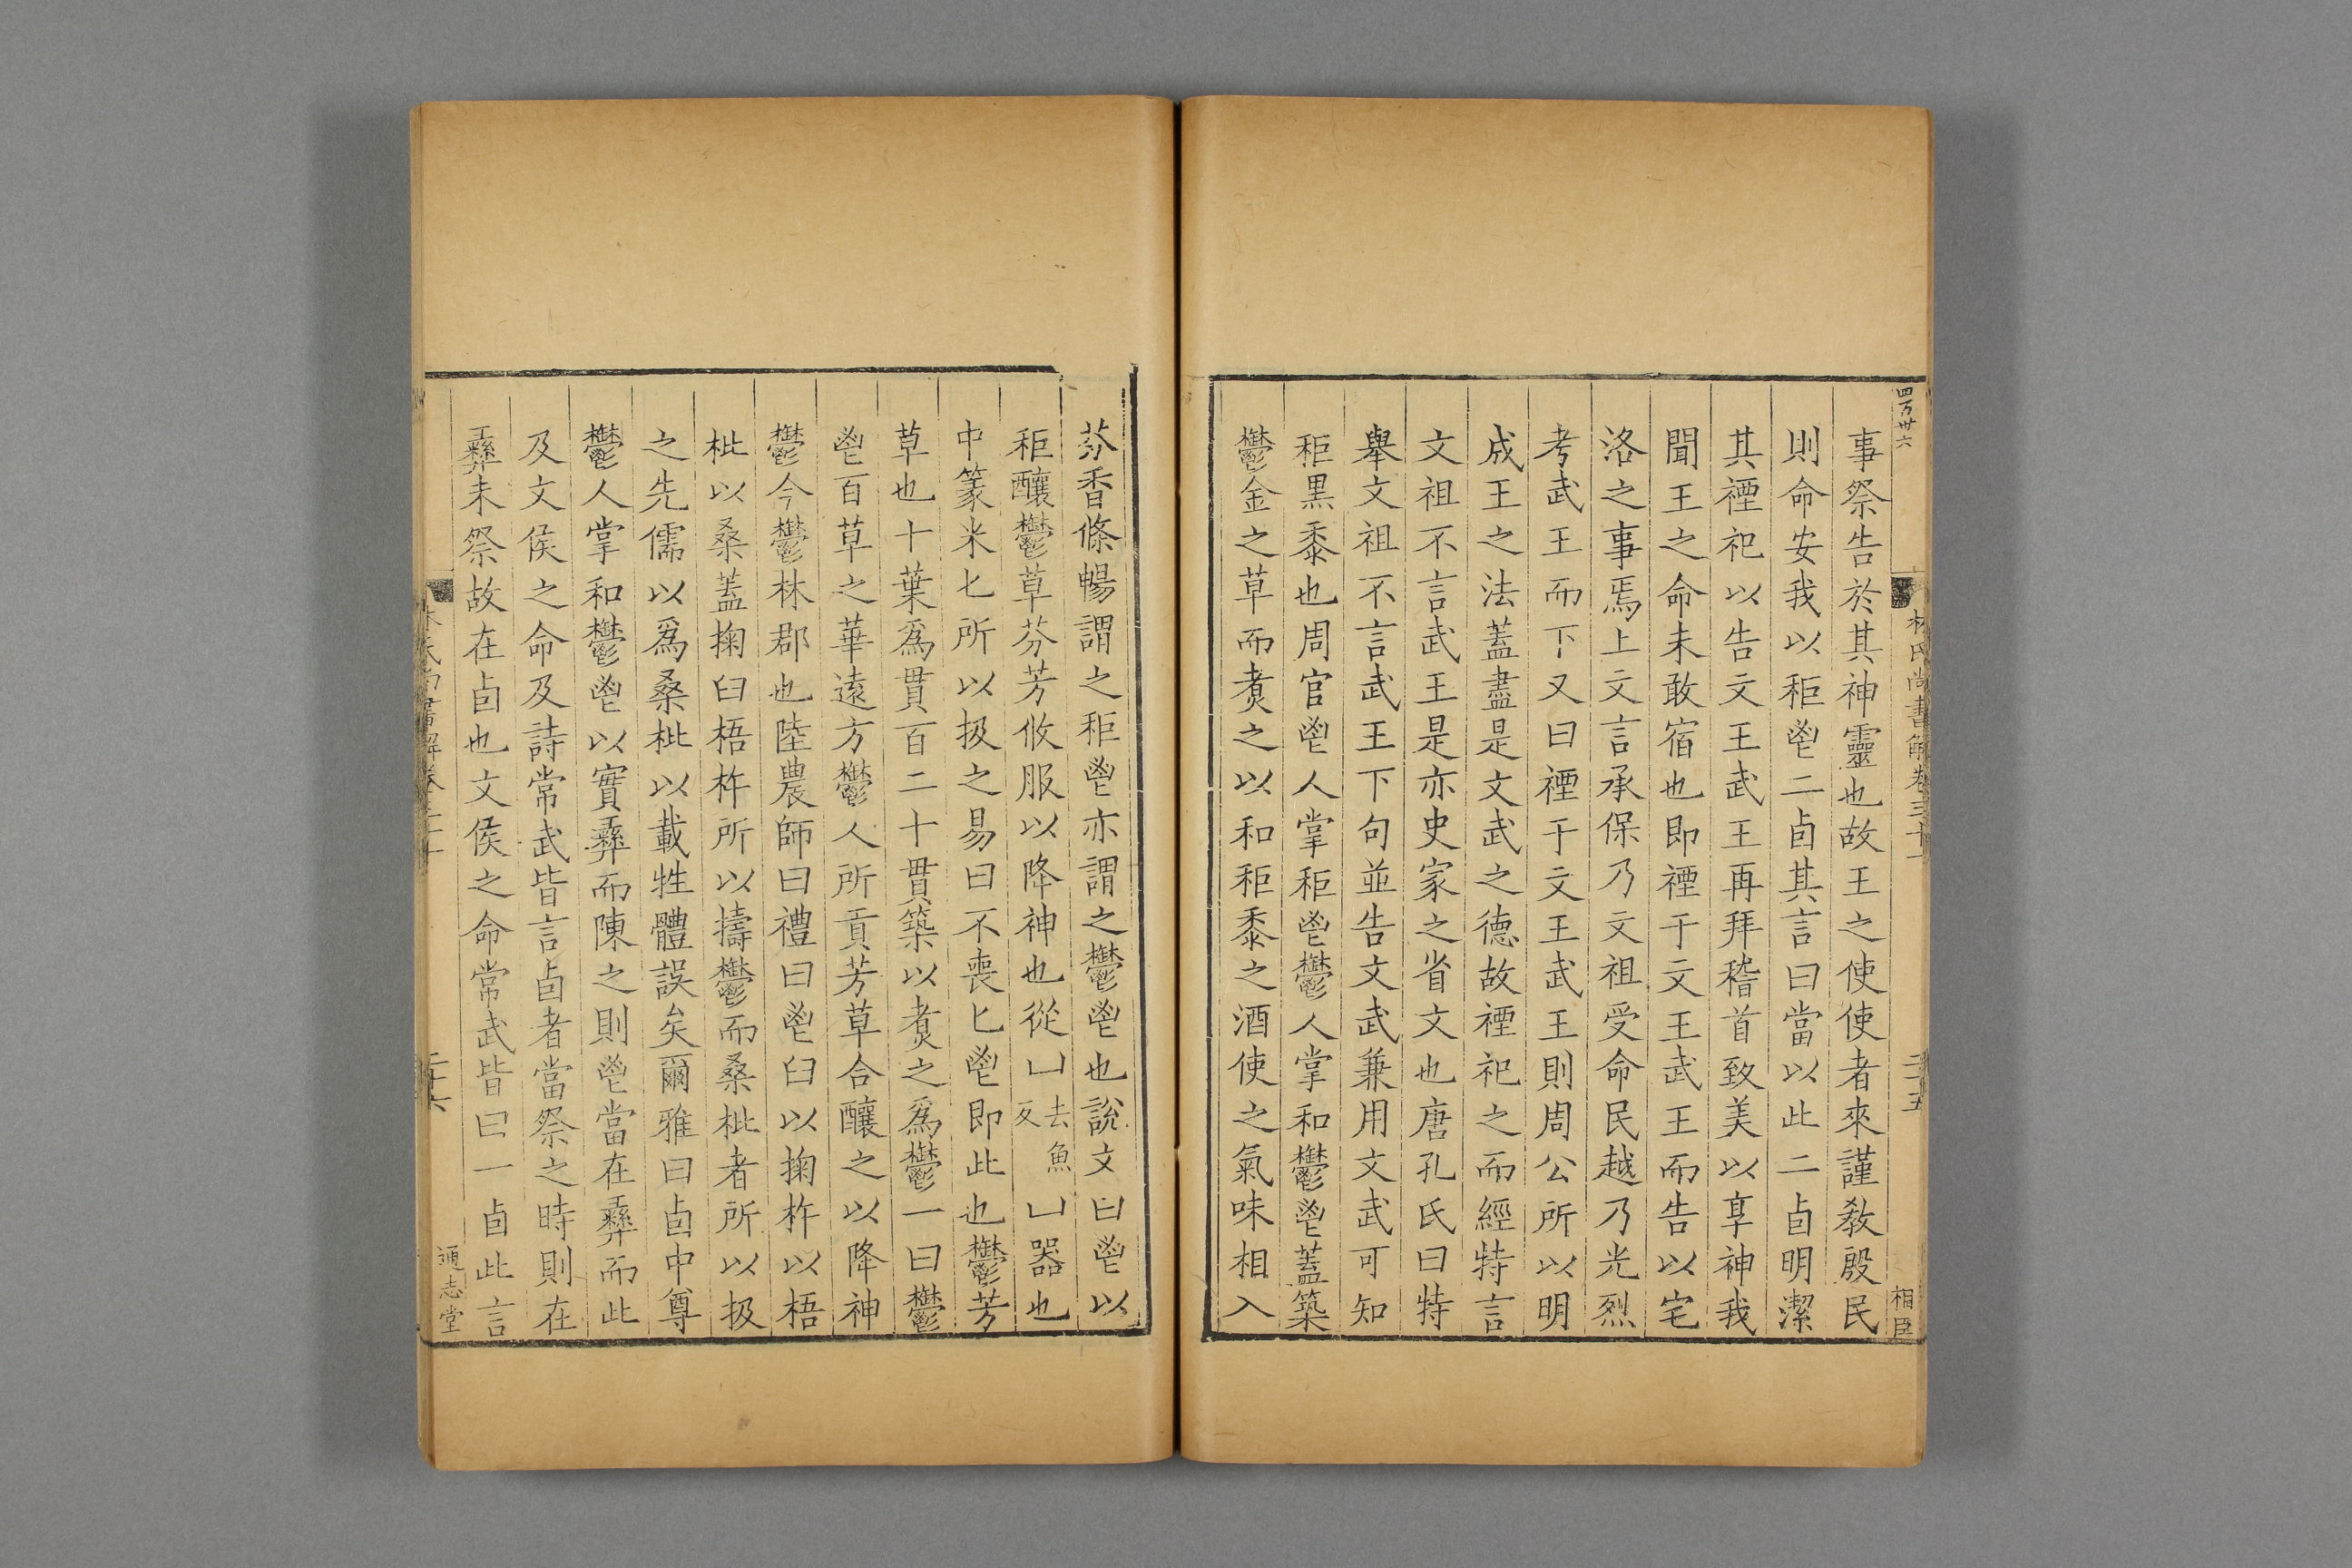 四万卅六
林氏尚書解卷三十一
二十五
相臣
事祭告於其神靈也故王之使使者來謹敎殷民
則命安我以秬鬯二卣其言曰當以此二卣明潔
其禋祀以告文王武王再拜稽首致美以享神我
聞王之命未敢宿也即禋于文王武王而告以宅
洛之事焉上文言承保乃文祖受命民越乃光烈
考武王而下又曰禋于文王武王則周公所以明
成王之法蓋盡是文武之德故禋祀之而經特言
文祖不言武王是亦史家之省文也唐孔氏曰特
舉文祖不言武王下句並告文武兼用文武可知
秬黒黍也周官鬯人掌秬鬯鬱人掌和鬱鬯蓋築
鬱金之草而煑之以和秬黍之酒使之氣味相入
芬香條暢謂之秬鬯亦謂之鬱鬯也說文曰鬯以
秬釀鬱草芬芳攸服以降神也從凵去魚反凵器也
中篆米匕所以扱之易曰不喪匕鬯即此也鬱芳
草也十葉爲貫百二十貫築以煑之爲鬱一曰鬱
鬯百草之華遠方鬱人所貢芳草合釀之以降神
鬱今鬱林郡也陸農師曰禮曰鬯臼以掬杵以梧
枇以桑蓋掬臼梧杵所以擣鬱而桑枇者所以扱
之先儒以爲桑枇以載牲體誤矣爾雅曰卣中尊
鬱人掌和鬱鬯以實彝而陳之則鬯當在彝而此
及文侯之命及詩常武皆言卣者當祭之時則在
彝未祭故在卣也文侯之命常武皆曰一卣此言
二十六
通志堂